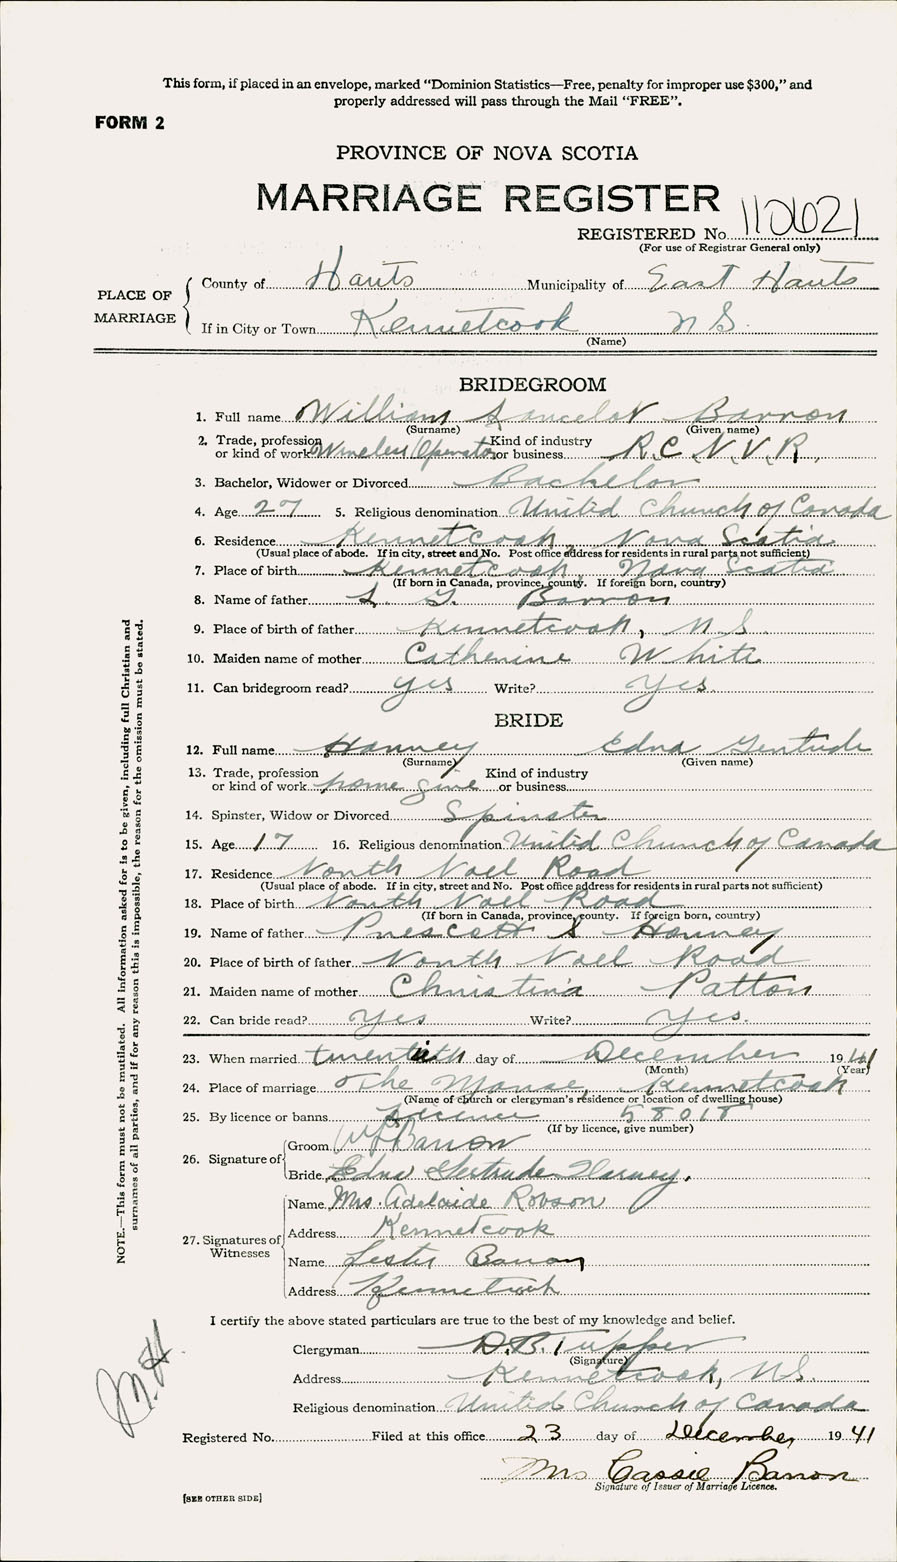 This form, if placed in an envelope, marked “Dominion Statistics—Free, penalty for improper use $300,” and
properly addressed will pass through the Mail “FREE”.
FORM 2
PROVINCE OF NOVA SCOTIA
MARRIAGE REGISTER
REGISTERED No. 110621
(For use of Registrar General only)
PLACE OF MARRIAGE
County of Hants Municipality of East Hants
If in City or Town Kennetcook N S.
(Name)
BRIDEGROOM
1. Full name William Lancelot Barron
(Surname) (Given name)
2. Trade, profession or kind of work Wireless Operator Kind of industry or business R. C. N. V. R.
3. Bachelor, Widower or Divorced Bachelor
4. Age 27 5. Religious denomination United Church of Canada
6. Residence Kennetcook, Nova Scotia
(Usual place of abode. If in city, street and No. Post office address for residents in rural parts not sufficient)
7. Place of birth Kennetcook, Nova Scotia
(If born in Canada, province, county. If foreign born, country)
8. Name of father L. G. Barron
9. Place of birth of father Kennetcook, N.S.
10. Maiden name of mother Catherine White
11. Can bridegroom read? yes Write? yes.
BRIDE
12. Full name Harvey Edna Gertrude
(Surname) (Given name)
13. Trade, profession or kind of work home Kind of industry or business
14. Spinster, Widow or Divorced Spinster
15. Age 17 16. Religious denomination United Church of Canada
17. Residence North Noel Road
(Usual place of abode. If in city, street and No. Post office address for residents in rural parts not sufficient)
18. Place of birth North Noel Road
(If born in Canada, province, county. If foreign born, country)
19. Name of father Prescott S Harvey
20. Place of birth of father North Noel Road
21. Maiden name of mother Christina Patton
22. Can bride read? yes Write? yes.
23. When married twentieth day of December 1941
(Month) (Year)
24. Place of marriage The Manse, Kennetcook
(Name of church or clergyman's residence or location of dwelling house)
25. By licence or banns Licence 58018
(If by licence, give number)
26. Signature of
Groom W L Barron
Bride Edna Gertrude Harvey.
27. Signatures of Witnesses
Name Mrs Adelaide Robson
Address Kennetcook
Name Lester Barron
Address Kennetcook
I certify the above stated particulars are true to the best of my knowledge and belief.
Clergyman D. B. Tupper
(Signature)
Address Kennetcook, N.S.
Religious denomination United Church of Canada
Registered No. Filed at this office 23 day of December 1941
Mrs Cassie Barron
Signature of Issuer of Marriage Licence.
[SEE OTHER SIDE]
NOTE.—This form must not be mutilated. All information asked for is to be given, including full Christian and
surnames of all parties, and if for any reason this is impossible, the reason for the omission must be stated.